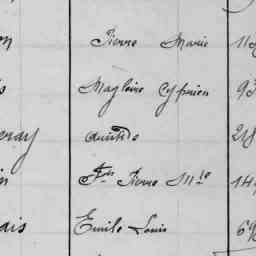 on Pierre Marie 11
s Magloire Cyprien 93
eray Aristide 218
in Fçois Pierre Mie 14
ais Emile Louis 69